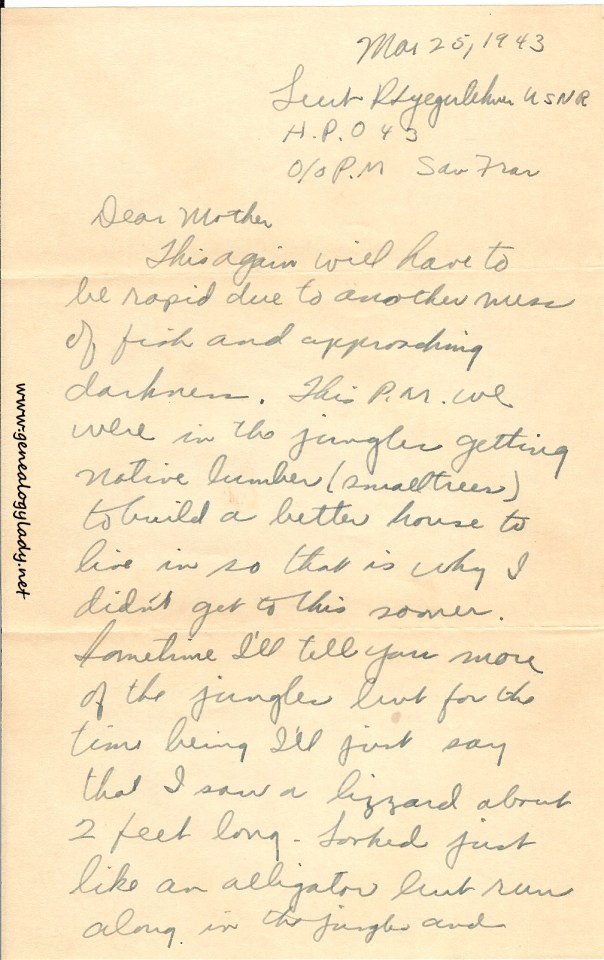 Mar 25, 1943
Lieut R Yegerlehner USNR
A.P.O 43
C/o P.M San Fran
Dear Mother
This again will have to
be rapid due to another mess
of fish and approaching
darkness. This P.M. we
were in the jungles getting
native lumber (small trees)
to build a better house to
live in so that is why I
didn't get to this sooner.
Sometime I'll tell you more
of the jungles but for the
time being I'll just say
that I saw a lizzard about
2 feet long. Looked just
like an alligator but run
along in the jungle and
www.genealogylady.net